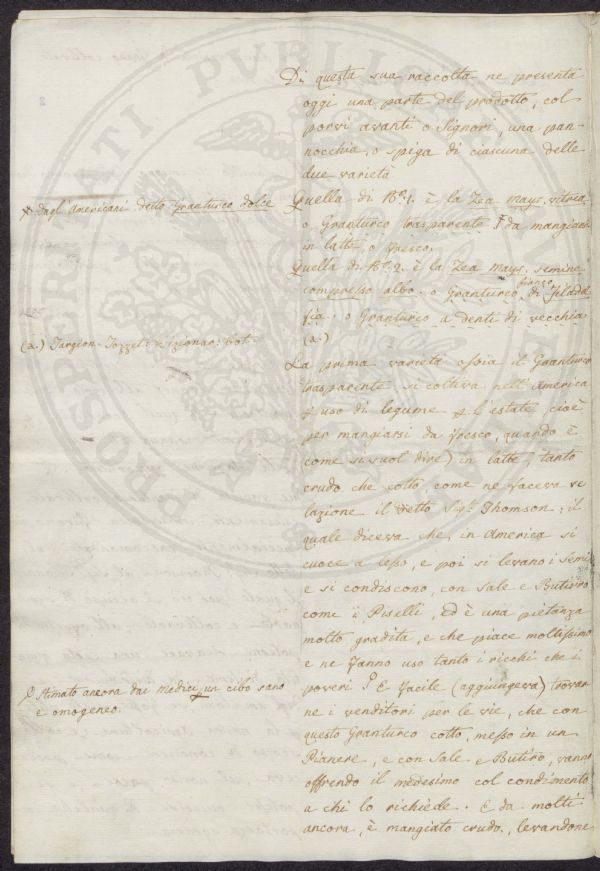 PROSPERITATI PVBLICAE
Di questa sua raccolta ne presenta
oggi una parte del prodotto, col
porvi avanti o Signori, una pan-
nocchia, o spiga di ciascuna delle
due varietà
Quella di N.º 1. è la Zea mays. vitrea,
o Granturco trasparente da mangiarsi
in latte o fresco.
Quella di N.º 2. è la Zea mays. semine
compresso albo. o Granturco di Filadel
fia. o Granturco a denti di vecchia
(a.)
La prima varietà ossia il Granturco
trasparente si coltiva nell'America
p uso di legume p l'estate cioè
per mangiarsi da fresco, quando è
come si suol dire) in latte, tanto
crudo che cotto, come ne faceva re
lazione il detto Sigr. Thomson; il
quale diceva che, in America si
cuoce a lesso, e poi si levano i semi
e si condiscono, con Sale e Butirro
come i Piselli, ed è una pietanza
molto gradita, e che piace moltissimo
e ne fanno uso tanto i ricchi che i
poveri È facile (aggiungeva) trovar
ne i venditori per le vie, che con
questo Granturco cotto, messo in un
Paniere, e con Sale e Butiro, vanno
offrendo il medesimo col condimento
a chi lo richiede. E da molti
ancora, è mangiato crudo, levandone
dagl'Americani detto Granturco dolce
(a.) Targion. Tozzeti Dizionar: bot:
Stimato ancora dai Medici un cibo sano
e omogeneo.